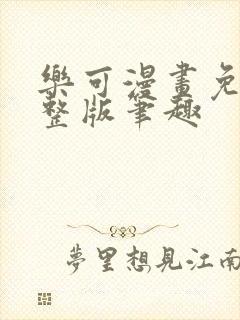 樂可漫畫免
整版筆趣
夢里想見江南